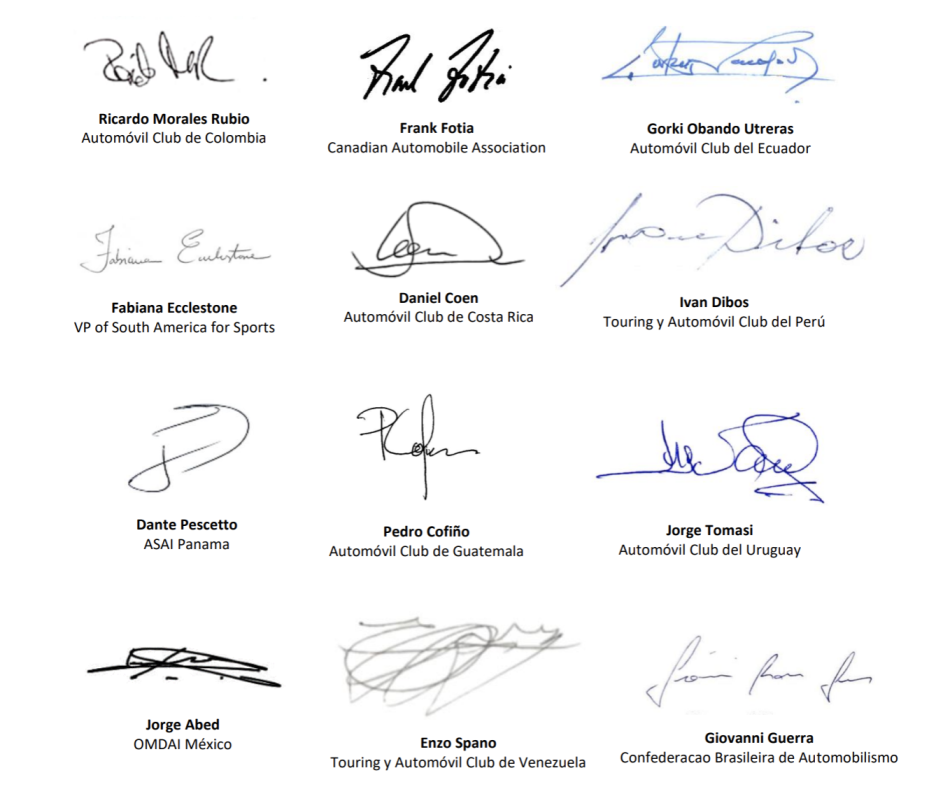 Ricardo Morales Rubio
Automóvil Club de Colombia
Frank Fotia
Frank Fotia
Canadian Automobile Association
Gorki Obando Utreras
Automóvil Club del Ecuador
Fabiana Ecclestone
Fabiana Ecclestone
VP of South America for Sports
Coen
Daniel Coen
Automóvil Club de Costa Rica
Dibos
Ivan Dibos
Touring y Automóvil Club del Perú
Dante Pescetto
ASAI Panama
Pedro Cofiño
Automóvil Club de Guatemala
Jorge Tomasi
Automóvil Club del Uruguay
Jorge Abed
OMDAI México
Enzo Spano
Touring y Automóvil Club de Venezuela
Giovanni Guerra
Confederacao Brasileira de Automobilismo